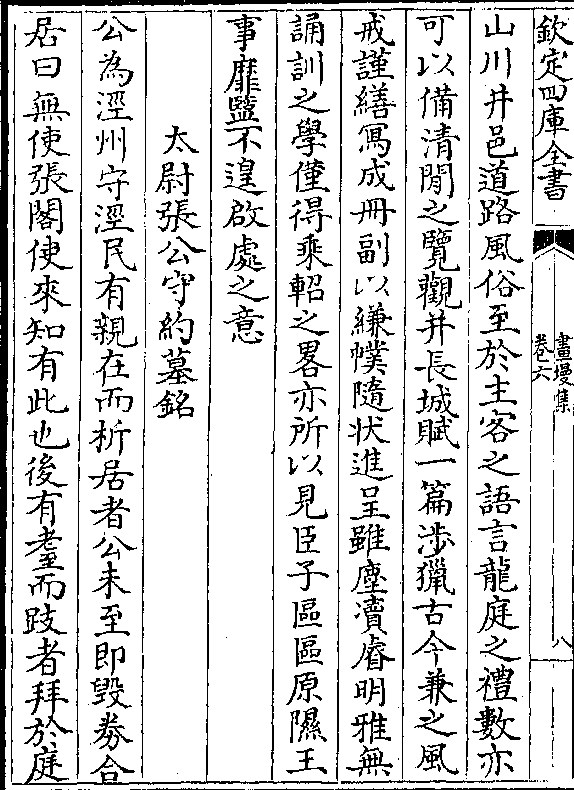 欽定四庫全書
畫墁集
卷六
八
山川井邑道路風俗至於主客之語言龍庭之禮數亦
可以備清閒之覽觀并長城賦一篇涉獵古今兼之風
戒謹繕寫成冊副以縑幞隨狀進呈雖塵瀆睿明雅無
誦訓之學僅得乘軺之畧亦所以見臣子區區原隰王
事靡盬不遑啟處之意
太尉張公守約墓銘
公為涇州守涇民有親在而析居者公未至即毀券合
居曰無使張閣使來知有此也後有耋而跂者拜於庭